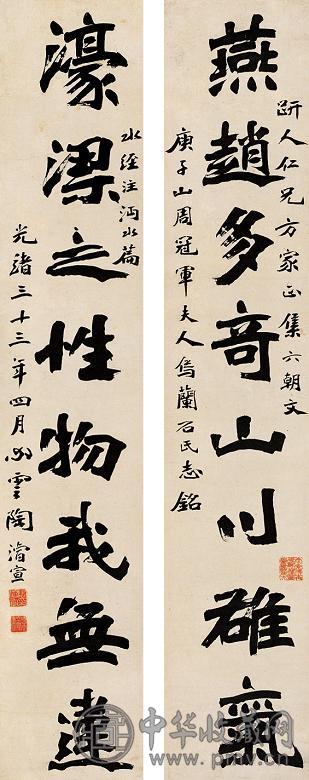 趼人仁兄方家正集六朝文
燕趙多竒山川雄氣
庚子山周冠軍夫人烏蘭石氏志銘
水經注沔水篇
濠梁之性物我無違
光緒三十三年四月心雲陶濬宣
中华收藏网